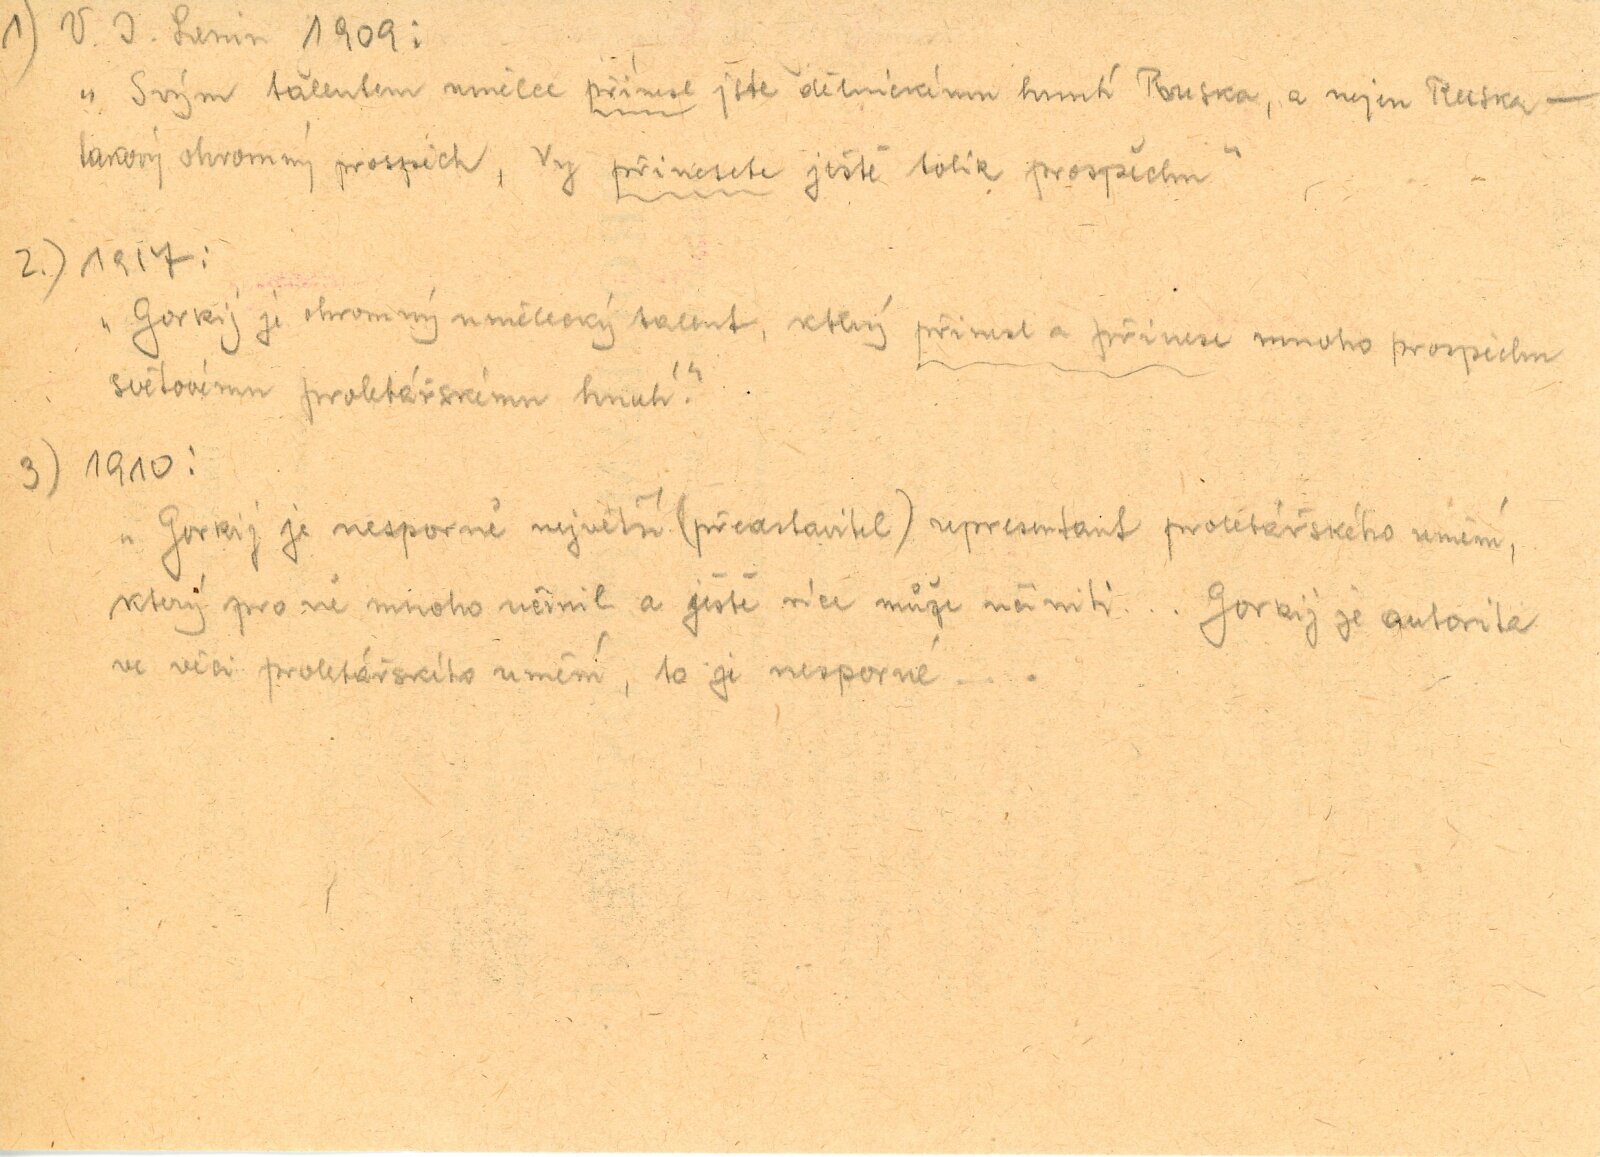 1) V. I. Lenin 1909:
„ Svým talentem umělce přinesl jste dělnickému hnutí Ruska, a nejen Ruska —
takový ohromný prospěch, Vy přinesete ještě tolik prospěchu "
2.) 1917:
„ Gorkij je ohromný umělecký talent, který přinesl a přinese mnoho prospěchu
světovému proletářskému hnutí."
3) 1910:
„ Gorkij je nesporně největší (představitel) representant proletářského umění,
který pro ně mnoho učinil a ještě více může učiniti... Gorkij je autorita
ve věci proletářského umění, to je nesporné ....